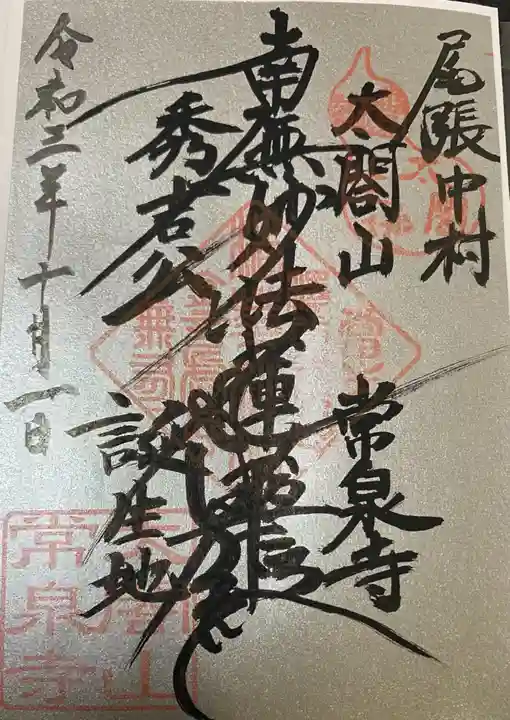 尾張中村
太閤山　常泉寺
南無妙法蓮華経
秀吉公　誕生地
令和三年十月一日
太閤
太閤山
常泉寺